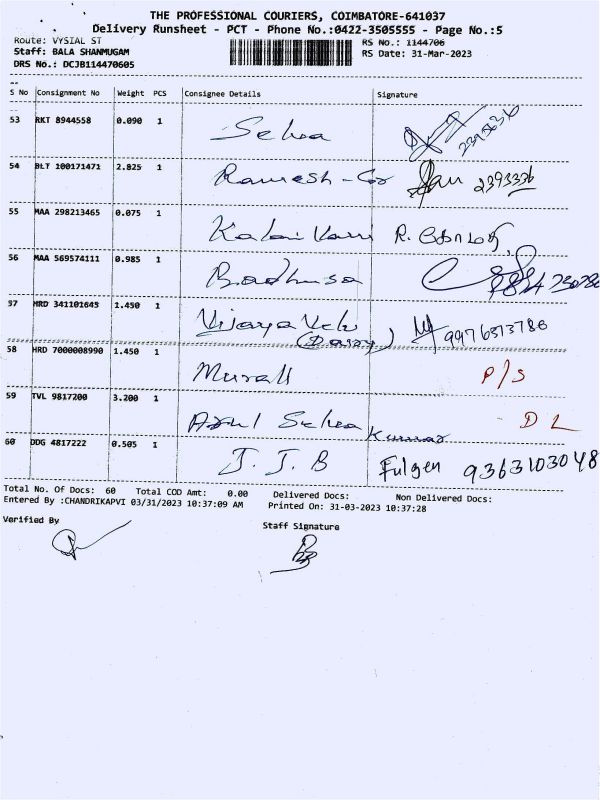 THE PROFESSIONAL COURIERS, COIMBATORE-641037
Delivery Runsheet - PCT - Phone No.:0422-3505555 - Page No.:5
Route: VYSIAL ST RS No.: 1144706
Staff: BALA SHANMUGAM RS Date: 31-Mar-2023
DRS No.: DCJB114470605
S No Consignment No Weight PCS Consignee Details Signature
53 RKT 8944558 0.090 1 Selva 23956316
54 BLT 100171471 2.825 1 Ramesh - 2393336
55 MAA 298213465 0.075 1 Kalai Vani R.
56 MAA 569574111 0.985 1 Badhusa
57 MRD 341101643 1.450 1 Vijaya Velu 9976373786
58 HRD 7000008990 1.450 1 Murali P/S
59 TVL 9817200 3.200 1 Arul Selva Kumar D L
60 DDG 4817222 0.505 1 J. J. B Fulgen 9363103048
Total No. Of Docs: 60 Total COD Amt: 0.00 Delivered Docs: Non Delivered Docs:
Entered By :CHANDRIKAPVI 03/31/2023 10:37:09 AM Printed On: 31-03-2023 10:37:28
Verified By Staff Signature